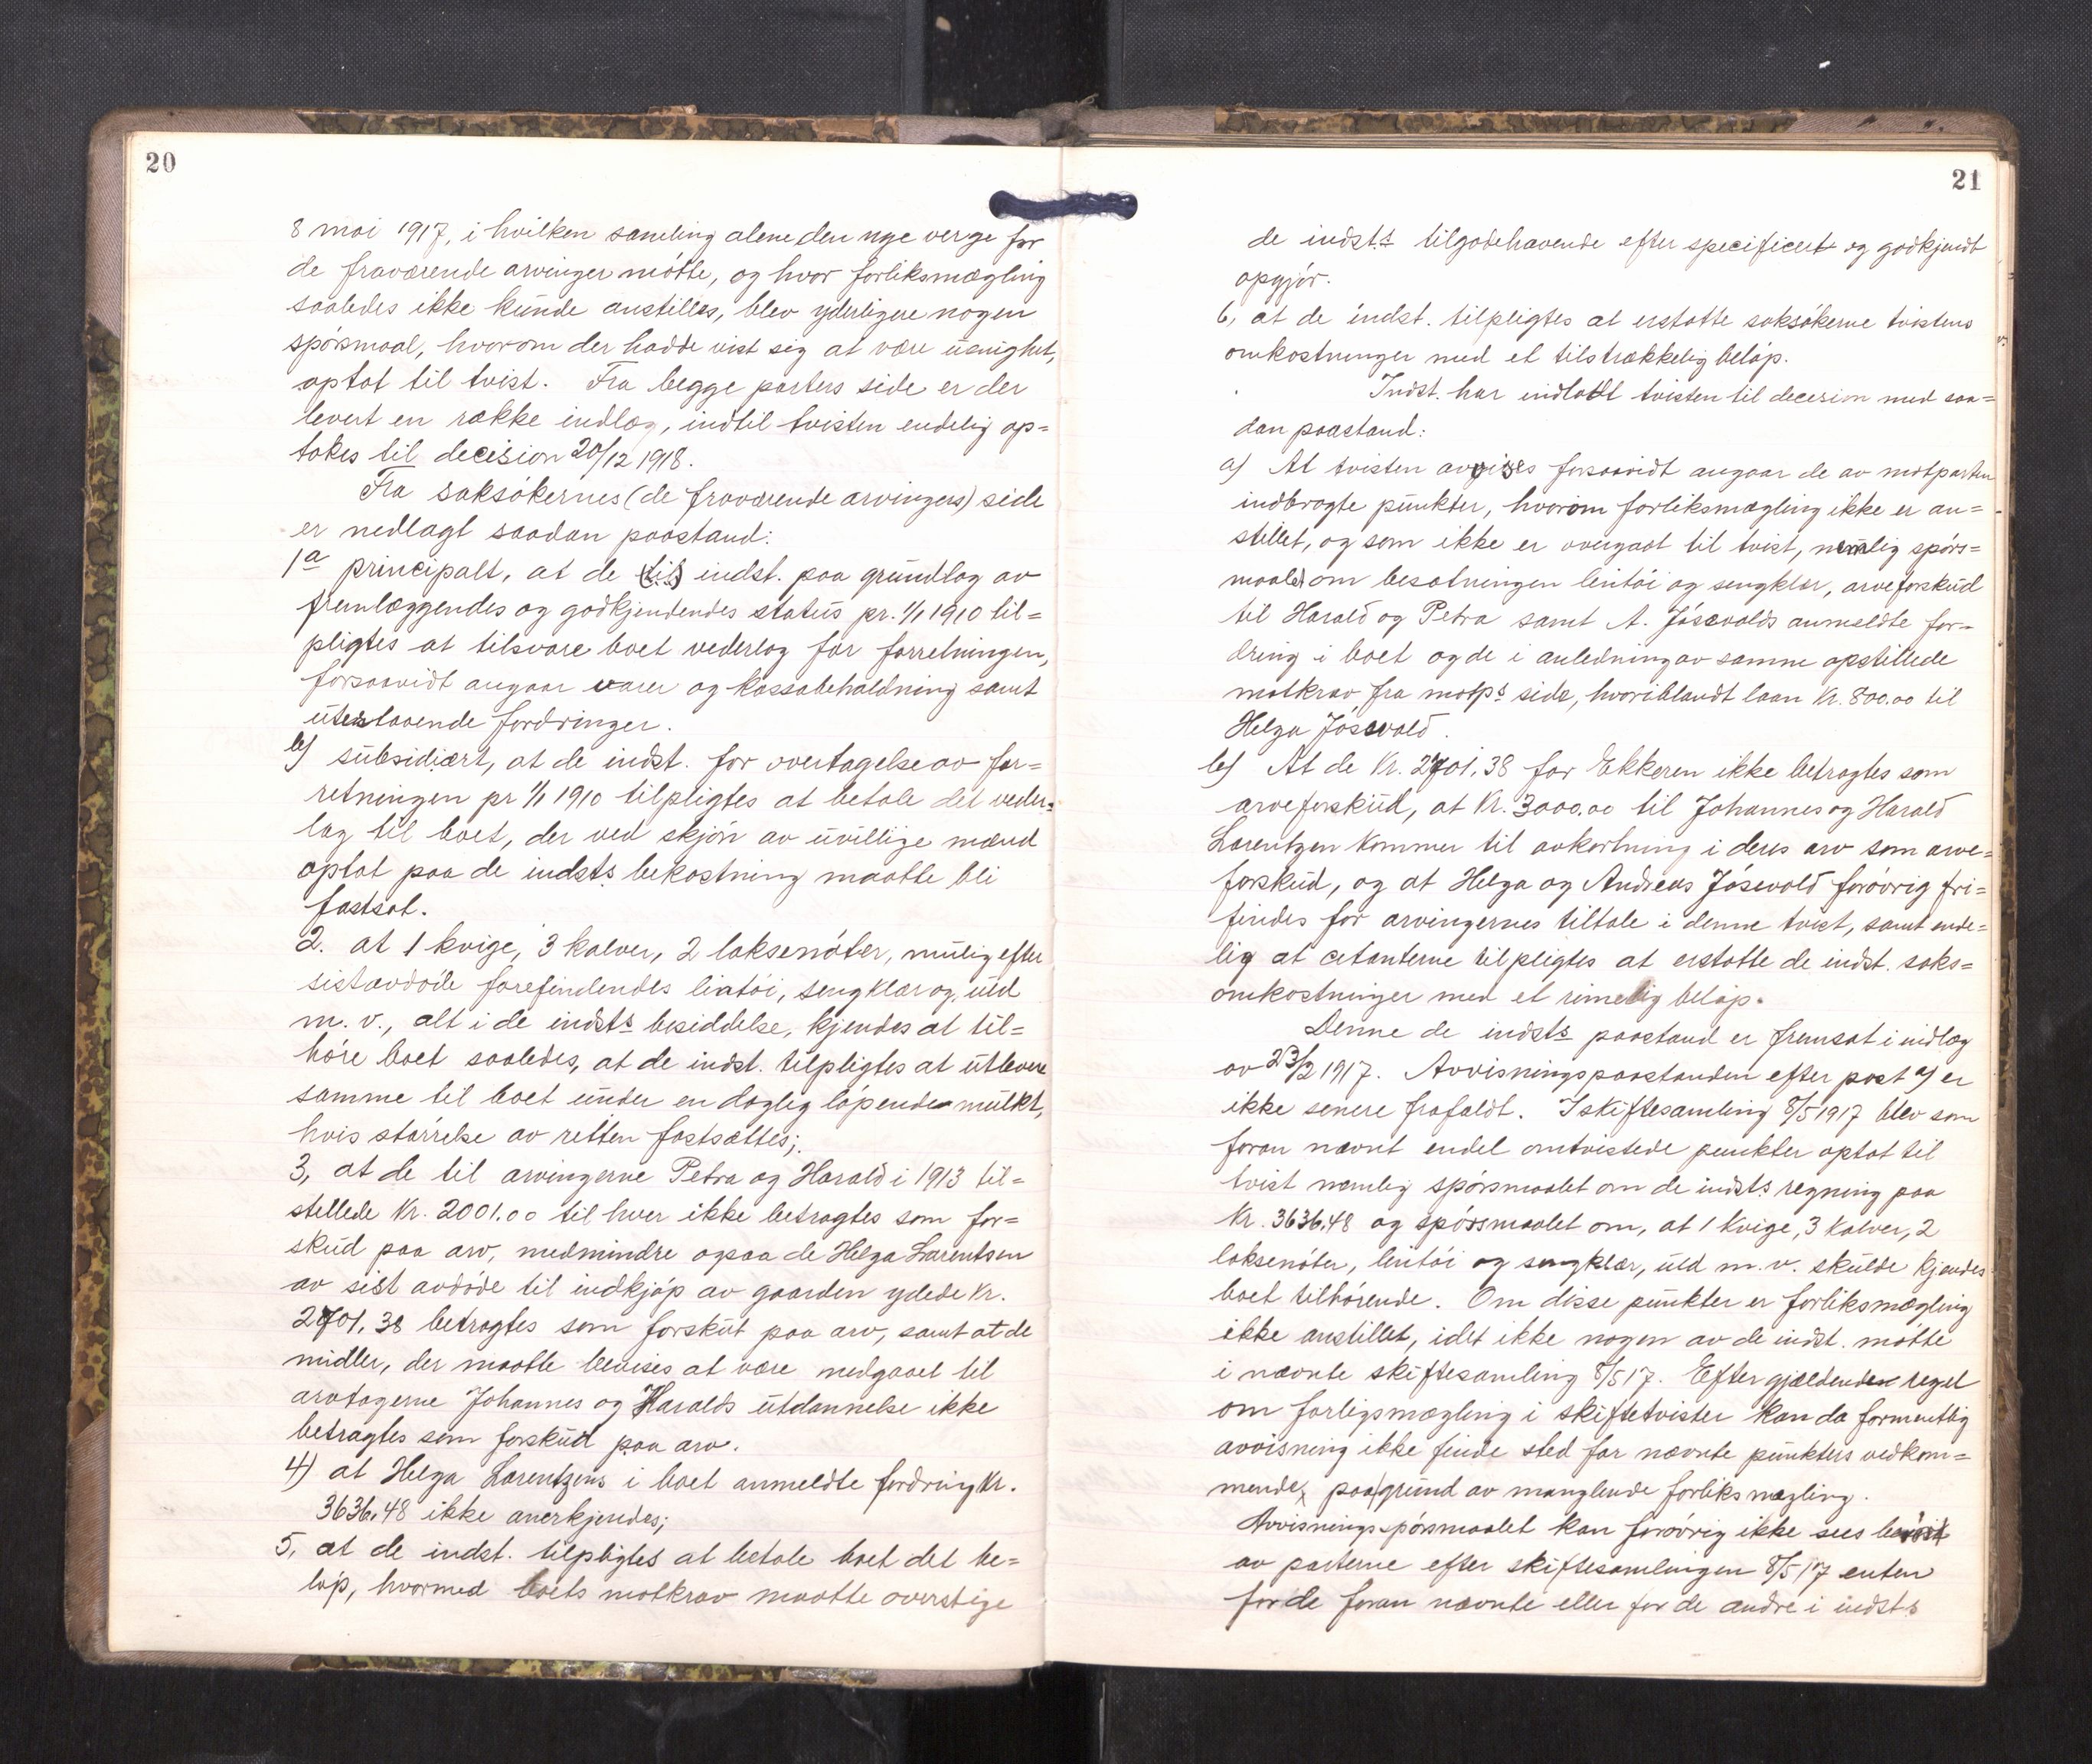 20
8 mai 1917, i hvilken samling alene den nye verge for
de fraværende arvinger møtte, og hvor forliksmægling
saaledes ikke kunde anstilles, blev yderligere nogen
spørsmaal, hvorom der hadde vist sig at være uenighet,
optat til tvist. Fra begge parters side er der
levert en række indlæg, indtil tvisten endelig op=
tokes til decision 20/12 1918.
Fra saksøkernes (de fraværende arvingers) side
er nedlagt saadan paastand:
1a principalt, at de (til) indst. paa grundlag av
fremlæggendes og godkjendendes status pr. 1/1 1910 til=
pligtes at tilsvare boet vederlag for forretningen,
forsaavidt angaar varer og kassabeholdning samt
utestaaende fordringer.
b) subsidiært, at de indst. for overtagelse av for=
retningen pr 1/1 1910 tilpligtes at betale det veder=
lag til boet, der ved skjøn av uvillige mænd
optat paa de indsts bekostning maatte bli
fastsat.
2. at 1 kvige, 3 kalver, 2 laksenøter, mulig efter
sistavdøde forefindendes lintøi, sengklær og uld
m. v., alt i de indsts besiddelse, kjendes at til=
høre boet saaledes, at de indst. tilpligtes at utlevere
samme til boet under en daglig løpende mulkt,
hvis størrelse av retten fastsættes;
3, at de til arvingerne Petra og Harald i 1913 til=
stellede Kr. 2001.00 til hver ikke betragtes som for=
skud paa arv, medmindre ogsaa de Helga Larentsen
av sist avdøde til indkjøp av gaarden ydede Kr.
2701,38 betragtes som forskut paa arv, samt at de
midler, der maatte bevises at være medgaaet til
arvtagerne Johannes og Haralds utdannelse ikke
betragtes som forskud paa arv.
4) at Helga Lorentzens i boet anmeldte fordring Kr.
3636,48 ikke anerkjendes;
5, at de indst. tilpligtes at betale boet det be=
løp, hvormed boets motkrav maatte overstige
21
de indsts tilgodehavende efter specificert og godkjendt
opgjør.
6, at de indst. tilpligtes at erstatte saksøkerne tvistens
omkostninger med et tilstrækkelig beløp.
Indst. har indlatt tvisten til decision med saa=
dan paastand:
a) At tvisten avvises forsaavidt angaar de av motparten
indbragte punkter, hvorom forliksmægling ikke er an=
stillet, og som ikke er overgaat til tvist, nemlig spørs=
maalet om besætningen lintøi og sengklær, arveforskud
til Harald og Petra samt A. Jøsevolds anmeldte for=
dring i boet og de i anledning av samme opstillede
motkrav fra motps side, hvoriblandt laan Kr. 800.00 til
Helga Jøsevold.
b) At de Kr. 2701,38 for Ekkeren ikke betragtes som
arveforskud, at Kr. 3000.00 til Johannes og Harald
Lorentzen kommer til avkortning i deres arv som arve=
forskud, og at Helga og Andreas Jøsevold forøvrig fri=
findes for arvingernes tiltale i denne tvist, samt ende=
lig at citanterne tilpligtes at erstatte de indst. saks=
omkostninger med et rimelig beløp.
Denne de indsts paastand er fremsat i indlæg
av 23/2 1917. Avvisningspaastanden efter post a) er
ikke senere frafaldt. I skiftesamling 8/5 1917 blev som
foran nævnt endel omtvistede punkter optat til
tvist nemlig spørsmaalet om de indsts regning paa
Kr. 3636,48 og spørsmaalet om, at 1 kvige, 3 kalver, 2
laksenøter, lintøi og sengklær, uld m. v. skulde kjendes
boet tilhørende. Om disse punkter er forliksmægling
ikke anstillet, idet ikke nogen av de indst. møtte
i nævnte skiftesamling 8/5 17. Efter gjældende regel
om forligsmægling i skiftetvister kan da formentlig
avvisning ikke finde sted for nævnte punkters vedkom=
mende, paa grund av manglende forliksmægling.
Avvisningsspørsmaalet kan forøvrig ikke sees
av parterne efter skiftesamlingen 8/5 17 enten
for de foran nævnte eller for de andre i indsts